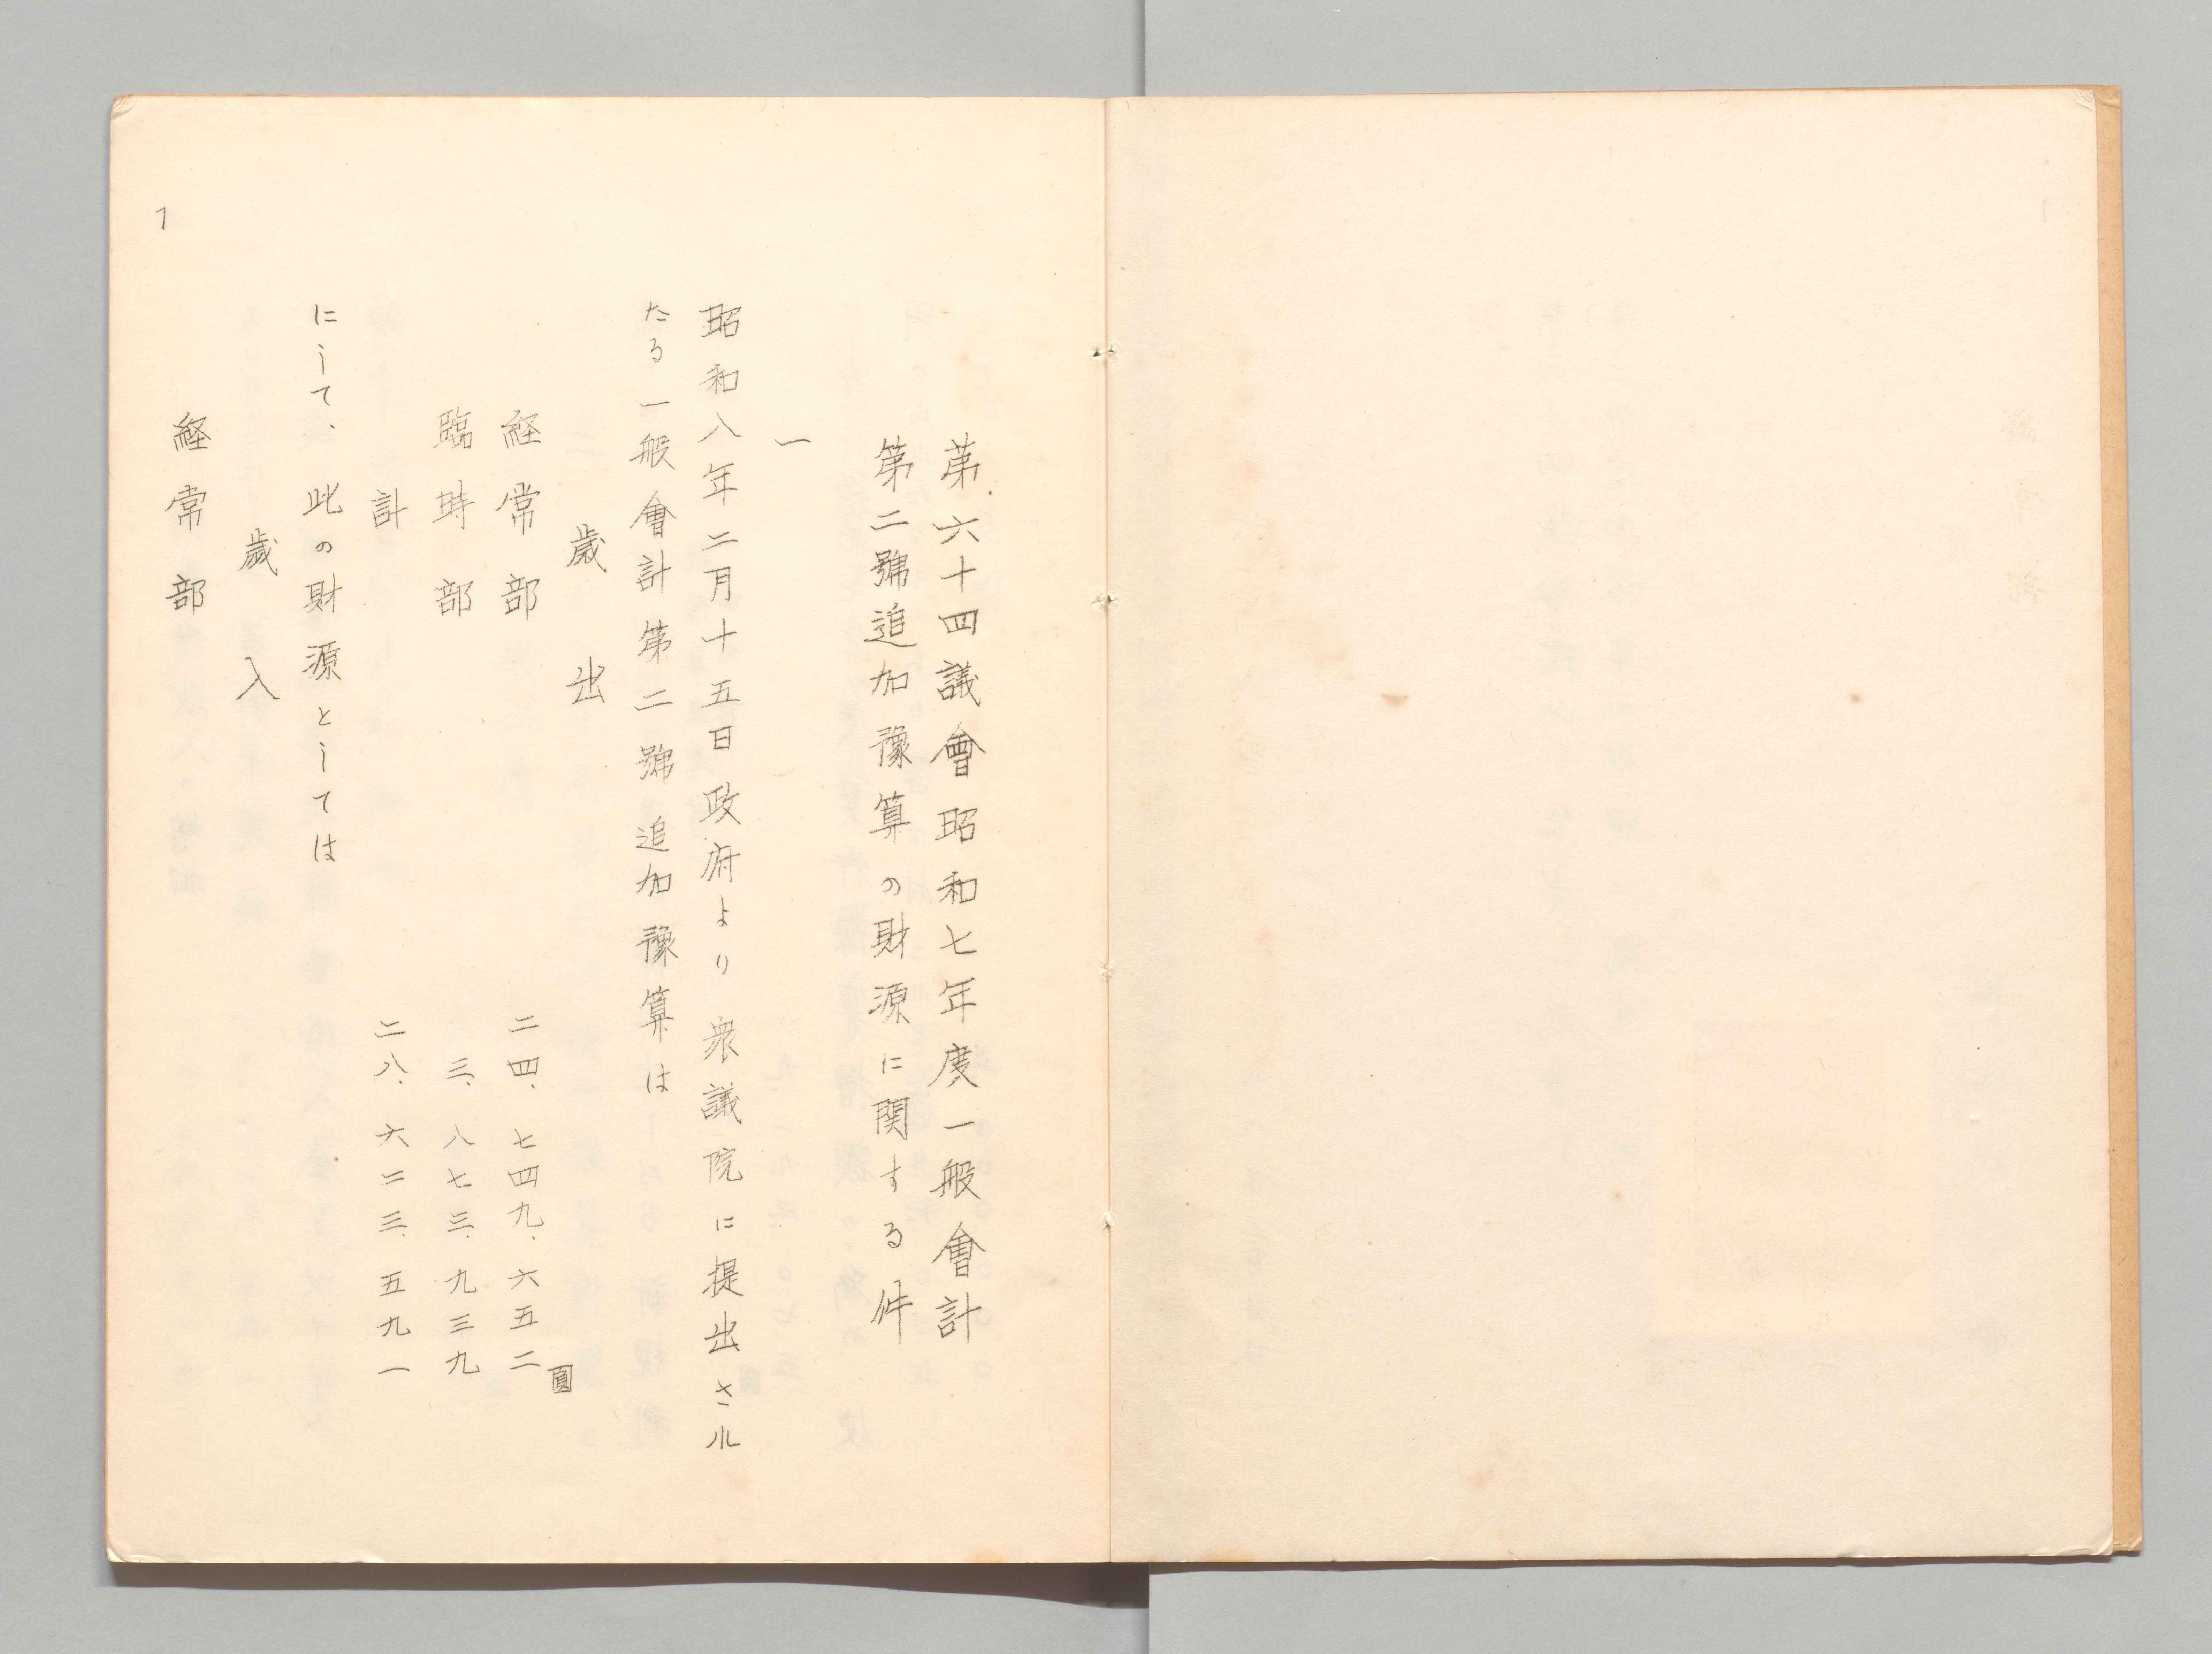 第六十四議會昭和七年度一般會計
第二號追加豫算の財源に関する件
一
昭和八年二月十五日政府より衆議院に提出さル
たる一般會計第二號追加豫算は
歳出
圓
経常部 二四、七四九、六五二
臨時部 三、八七三、九三九
計 二八、六二三、五九一
にして、此の財源としては
歳入
経常部
1